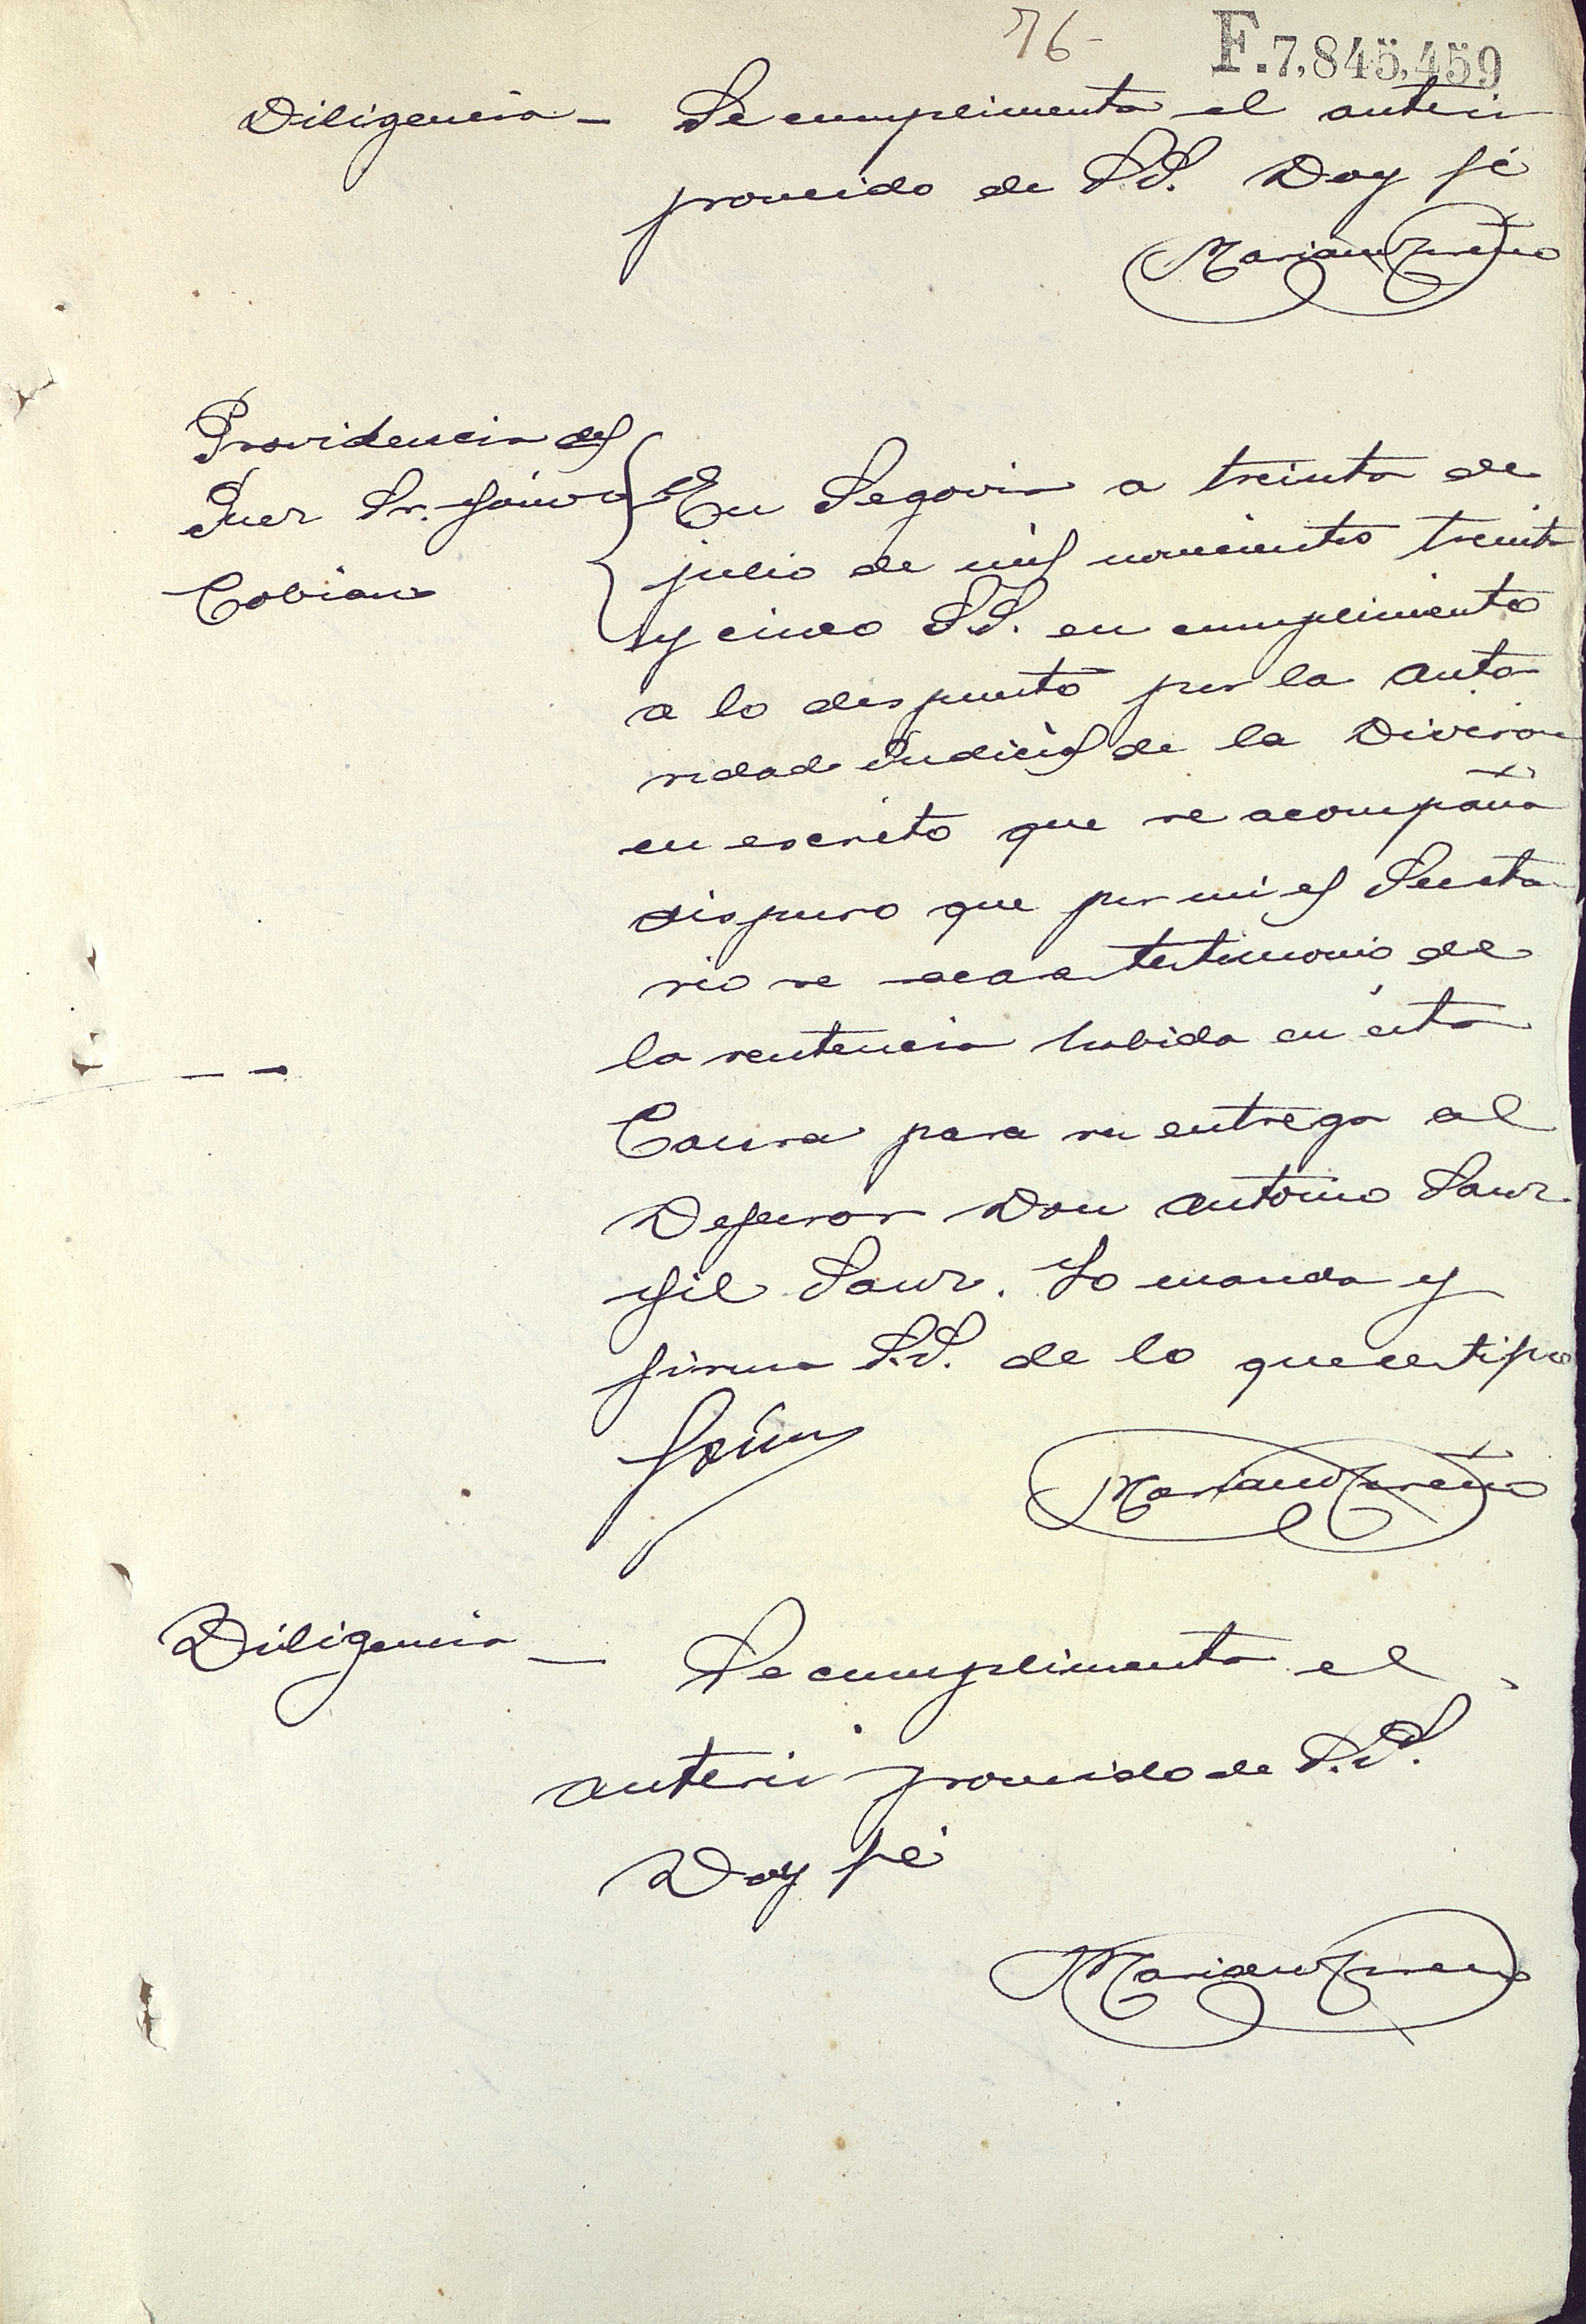 76-
F.7,845,459
Diligencia - Se cumplimenta el anterior
proveido de S.S. Doy fé
Mariano Moreno
Providencia del
Juez Sr. Gaínza
Cobian
En Segovia a treinta de
julio de mil novecientos treinta
y cinco S.S. en cumplimiento
a lo dispuesto por la Auto
ridad Judicial de la Division
en escrito que se acompaña
dispuso que por mi el Secreta
rio se saca testimonio de
la sentencia habida en ésta
Causa para su entrega al
Defensor Don Antonio Sanz
Gil Sanz. Lo manda y
firma S.S. de lo que certifico
Mariano Moreno
Diligencia - Se cumplimenta el
anterior proveido de S.S.
Doy fé
Mariano Moreno